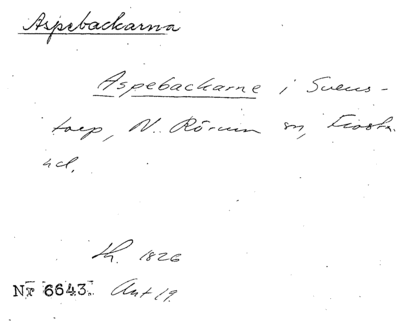 Aspebackarna
Aspebackarne i Svens-
torp, N. Rörum sn, Frosta
hd.
Lh. 1826
Nr 6643. Akt 19.